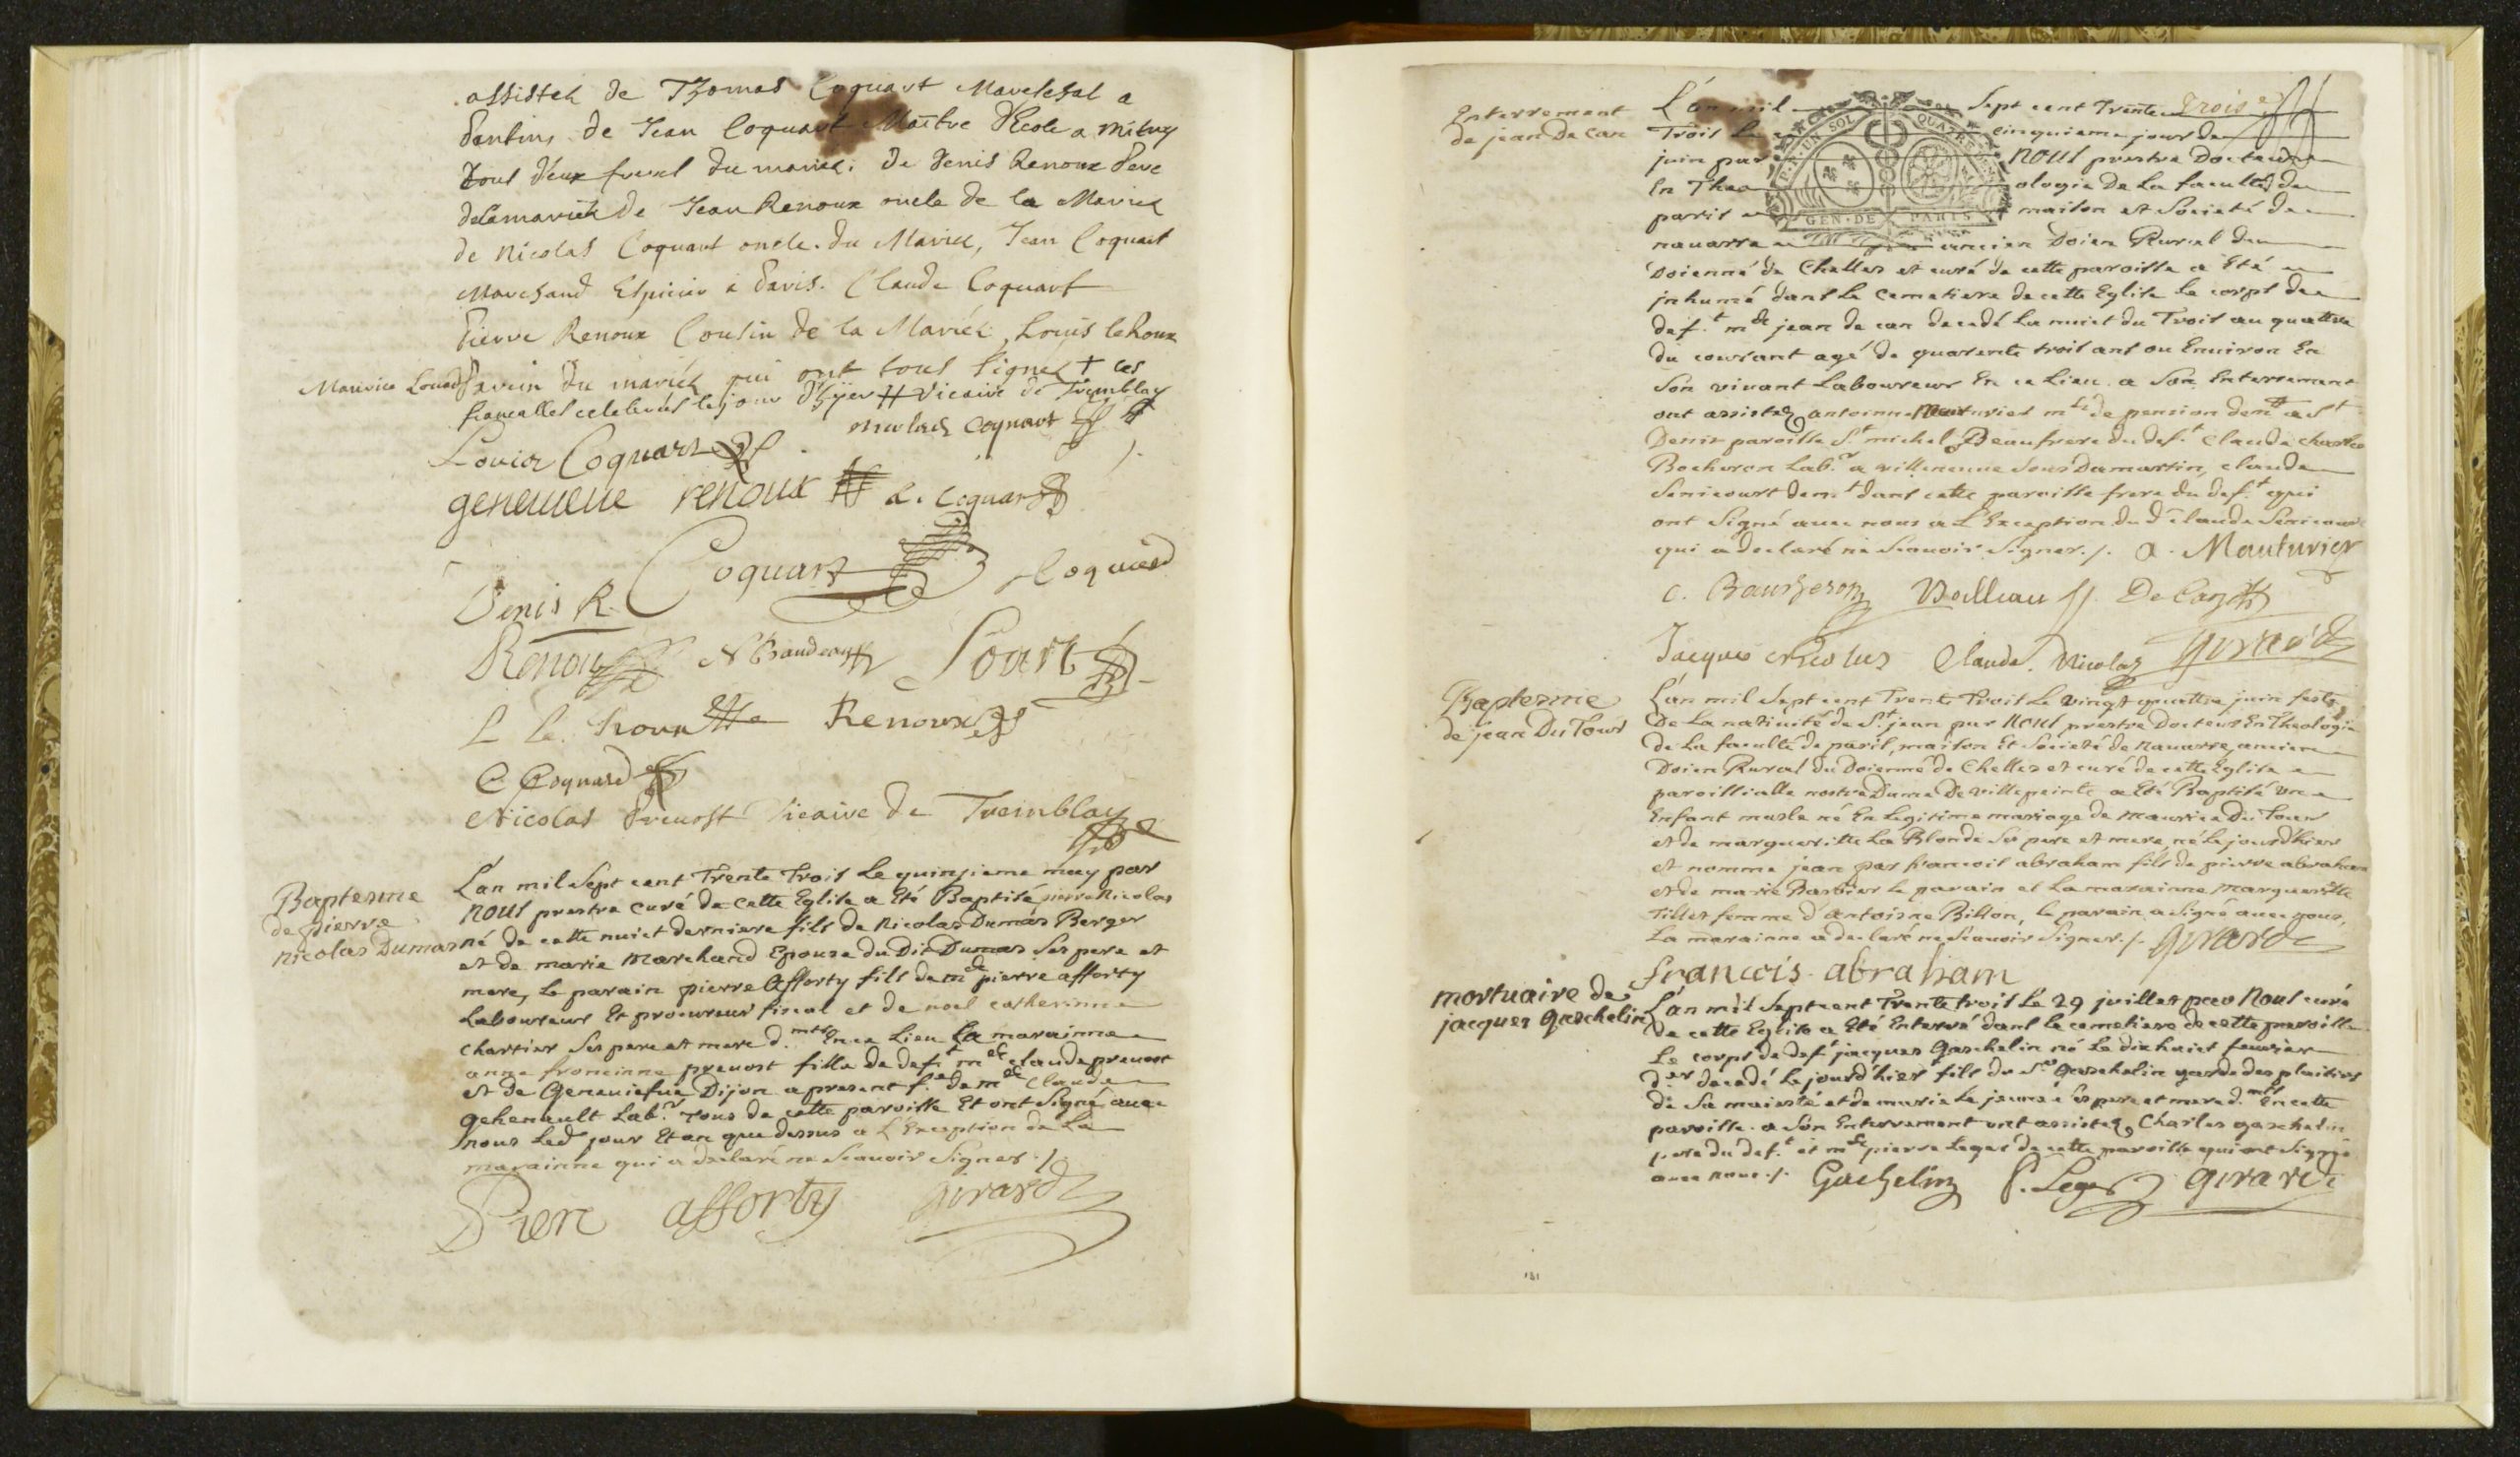 assistéz de Thomas Coquart Marelchal a
Pantins de Jean Coquart Maître d'Ecole a mitry
tous deux freres du mariéz. de Denis Renoux Pere
de la mariéz de Jean Renoux oncle de la Mariéz
de Nicolas Coquart oncle du Mariéz, Jean Coquart
Marchand Espicier à Paris. Claude Coquart
Pierre Renoux Cousin de la Mariéz, Louis le houx
Parein du mariéz qui ont tous signéz + les
fiancailles celebrées le jour d'hyer # Vicaire de Tremblay
nicolas coquart
Louis Coquart
genevieve renoux L. Coquart
Denis R. Coquart Coquard
Renoux
L le houx Renoux
C Coquard
Nicolas Prevost Vicaire de Tremblay
Baptesme
de pierre
nicolas Dumas
L'an mil Sept cent Trente Trois le quinzieme may par
nous prestre curé de cette Eglise a Eté Baptisé pierre Nicolas
né de cette nuict derniere fils de Nicolas Dumas Berger
et de marie Marchand Epouse du Dit Dumas Ses pere et
mere, le parain pierre Afforty fils de m.de pierre afforty
Laboureur Et procureur fiscal et de noel catherinne
Chartier Ses pere et mere d.mts En ce Lieu La marainne
anne francinne prevost fille de def.t m.de claude prevost
et de Geneviefve Dijon a present f.e de m.de Claude
Gehenault Lab.r Tous de cette paroisse Et ont signé avec
nous led. jour Et an que dessus a L'Exception de La
marainne qui a declaré ne Scavoir Signer ./.
Piere afforty Girard
Enterrement
de jean De Can
L'an mil Sept cent Trente Trois
Trois Le cinquieme jour de
juin par nous prestre Docteur
En Theo ologie De La faculté de
paris maison et Societé de
navarre ancien Doien Rural du
Doienné de Chelles et curé de cette paroisse a Eté
inhumé dans Le Cemetiere de cette Eglise Le corps de
def.t m.de jean de can decedé La nuict du Trois au quattre
du courant agé de quarente trois ans ou Environ En
Son vivant Laboureur En ce Lieu. a Son Enterrement
ont assistéz antoinne Mauturier m.e de pension dem.t a S.t
Denis paroisse S.t michel Beaufrere du def.t Claude charles
Bocheron Lab.r a villeneuve Sous Damartin, claude
Senicourt dem.t dans cette paroisse frere du def.t qui
ont Signé avec nous a L'Exception du d. Claude Senicourt
qui a declaré ne Scavoir Signer ./. A. Mauturier
C. Baucheron Boilleau De Can
Jacques Nicolas Claude. Nicolas Girard
Baptesme
de jean Du Tour
L'an mil Sept cent Trente Trois Le vingt quattre juin feste
De La nativité de S.t jean par nous prestre Docteur En Theologie
de La faculté de paris, maison Et Societé de Navarre, ancien
Doien Rural du Doienné de Chelles et curé de cette Eglise
paroissialle nostre Dame De villepeinte a Eté Baptisé un
Enfant masle né En Legitime mariage de Maurice Du Tour
et de margueritte La Blonde Ses pere et mere, né Le jour d'hier
et nommé jean par francois abraham fils de pierre abraham
et de marie Barbier le parain et La marainne Marguerite
Tillet femme d'antoinne Billon, le parain a signé avec nous,
La marainne a declaré ne Scavoir Signer ./. Girard
francois abraham
mortuaire de
jacques Gaschelin
L'an mil Sept cent Trente trois Le 29 juillet par Nous curé
de cette Eglise a Eté Enterré dans Le cemetiere de cette paroisse
Le corps de def.t jacques Gaschelin né Le dixhuict fevrier
d.er decedé Le jour d'hier fils du S.r Gaschelin garde des plaisirs
de Sa majesté et de marie Le jeune Ses pere et mere d.mts En cette
paroisse. a Son Enterrement ont assistéz Charles gaschelin
pere du def.t et m.de pierre Leger de cette paroisse qui ont Signé
avec nous ./. Gachelin P. Leger Girard